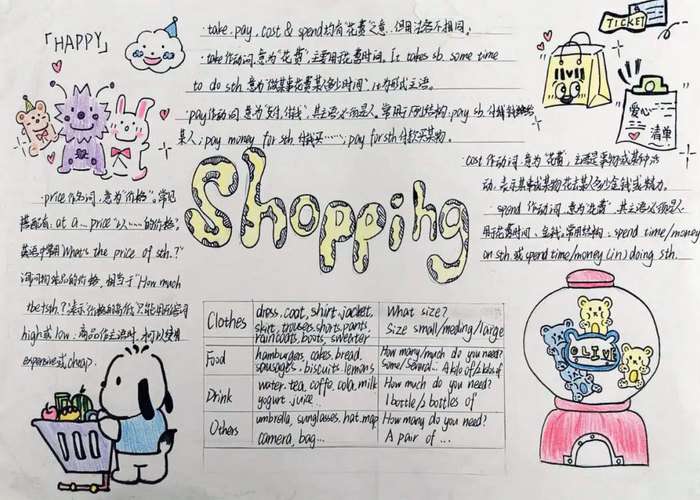 「HAPPY」
·take、pay、cost & spend均有"花费"之意，但用法各不相同。
·take作动词，意为"花费"，主要用于花费时间。It takes sb. some time
to do sth.意为"做某事花费某人多少时间" it为形式主语。
·pay作动词，意为"支付，付钱"，其主语必须是人。常用于下列结构：pay sb.
某人；pay money for sth 付钱买……；pay for sth 付款买某物。
TICKET
爱心
清单
cost作动词，意为"花费"，主语是事物或某种活
动，表示某事或某物花去某人多少金钱或精力。
·spend作动词，意为"花费"，其主语必须是人
用于花费时间、金钱。常用结构：spend time/money
on sth.或spend time/money (in) doing sth.
·price作名词，意为"价格"。常见
搭配有：at a...price"以……的价格"；
英语中常用What's the price of sth.?"
询问物品的价格，相当于"How much
be+sth?"表示价格的高低只能用形容词
high或low，商品作主语时，才可以使用
expensive或cheap.
Shopping
Clothes
dress, coat, shirt, jacket,
skirt, trousers, shorts, pants,
raincoats, boots, sweater
What size?
Size small/meding/large
Food
hamburgers, cakes, bread,
sausages, biscuits lemons
How many/much do you need?
Some/Several... A kilo of/kilos of
Drink
water, tea, coffe, cola, milk
yogurt, juice...
How much do you need?
1 bottle/2 bottles of
Others
umbrella, sunglasses, hat, map
camera, bag...
How many do you need?
A pair of ...
OLIVE